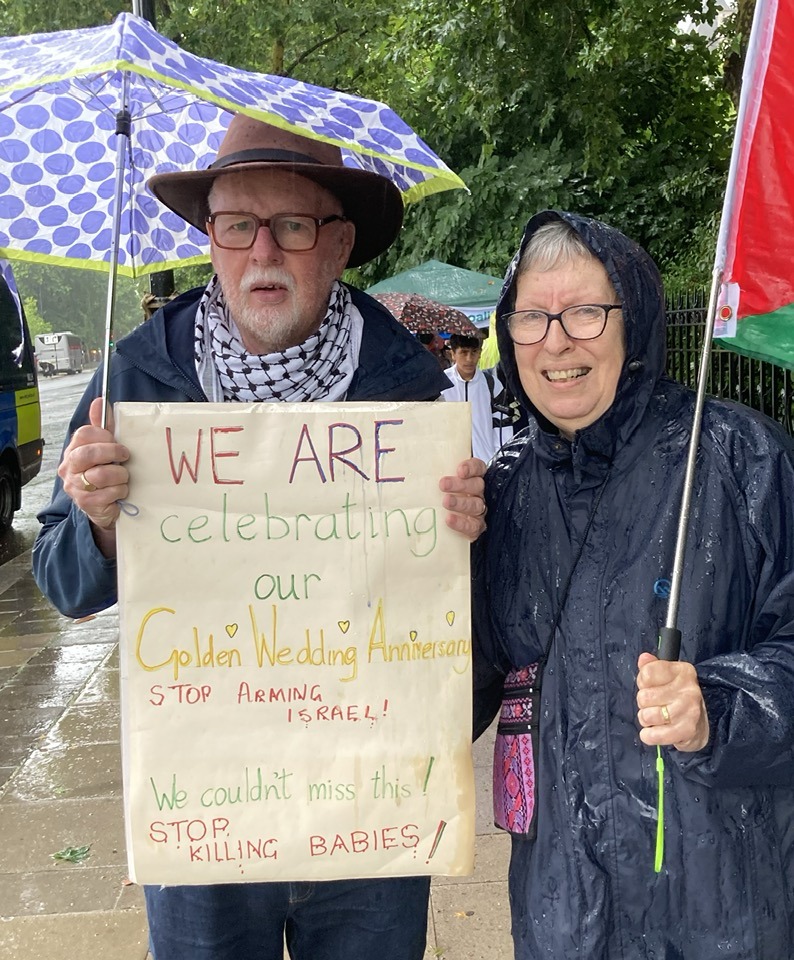 WE ARE
celebrating
our
Golden Wedding Anniversary
STOP ARMING
ISRAEL!
We couldn't miss this!
STOP
KILLING BABIES!